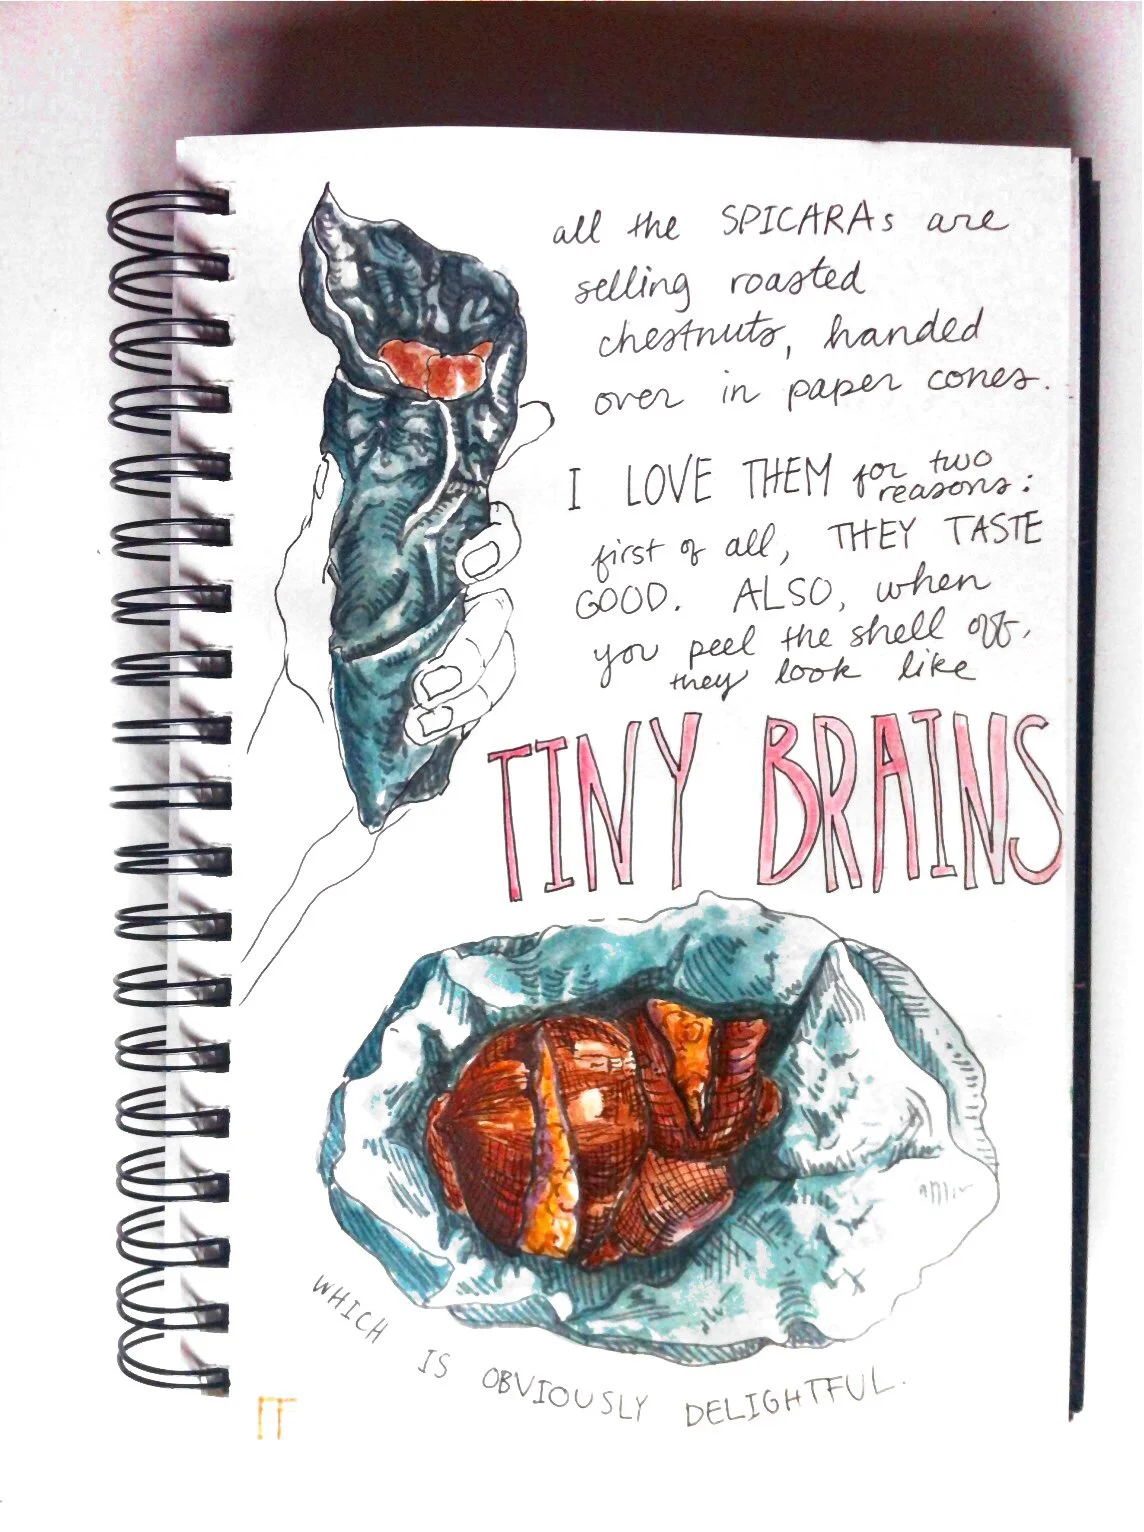 all the SPICARAs are
selling roasted
chestnuts, handed
over in paper cones.
I LOVE THEM for two
reasons:
first of all, THEY TASTE
GOOD. ALSO, when
you peel the shell off,
they look like
TINY BRAINS
WHICH IS OBVIOUSLY DELIGHTFUL.